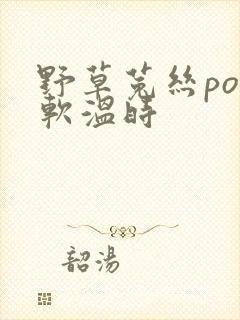 野草菟絲po
軟溫時
韶湯